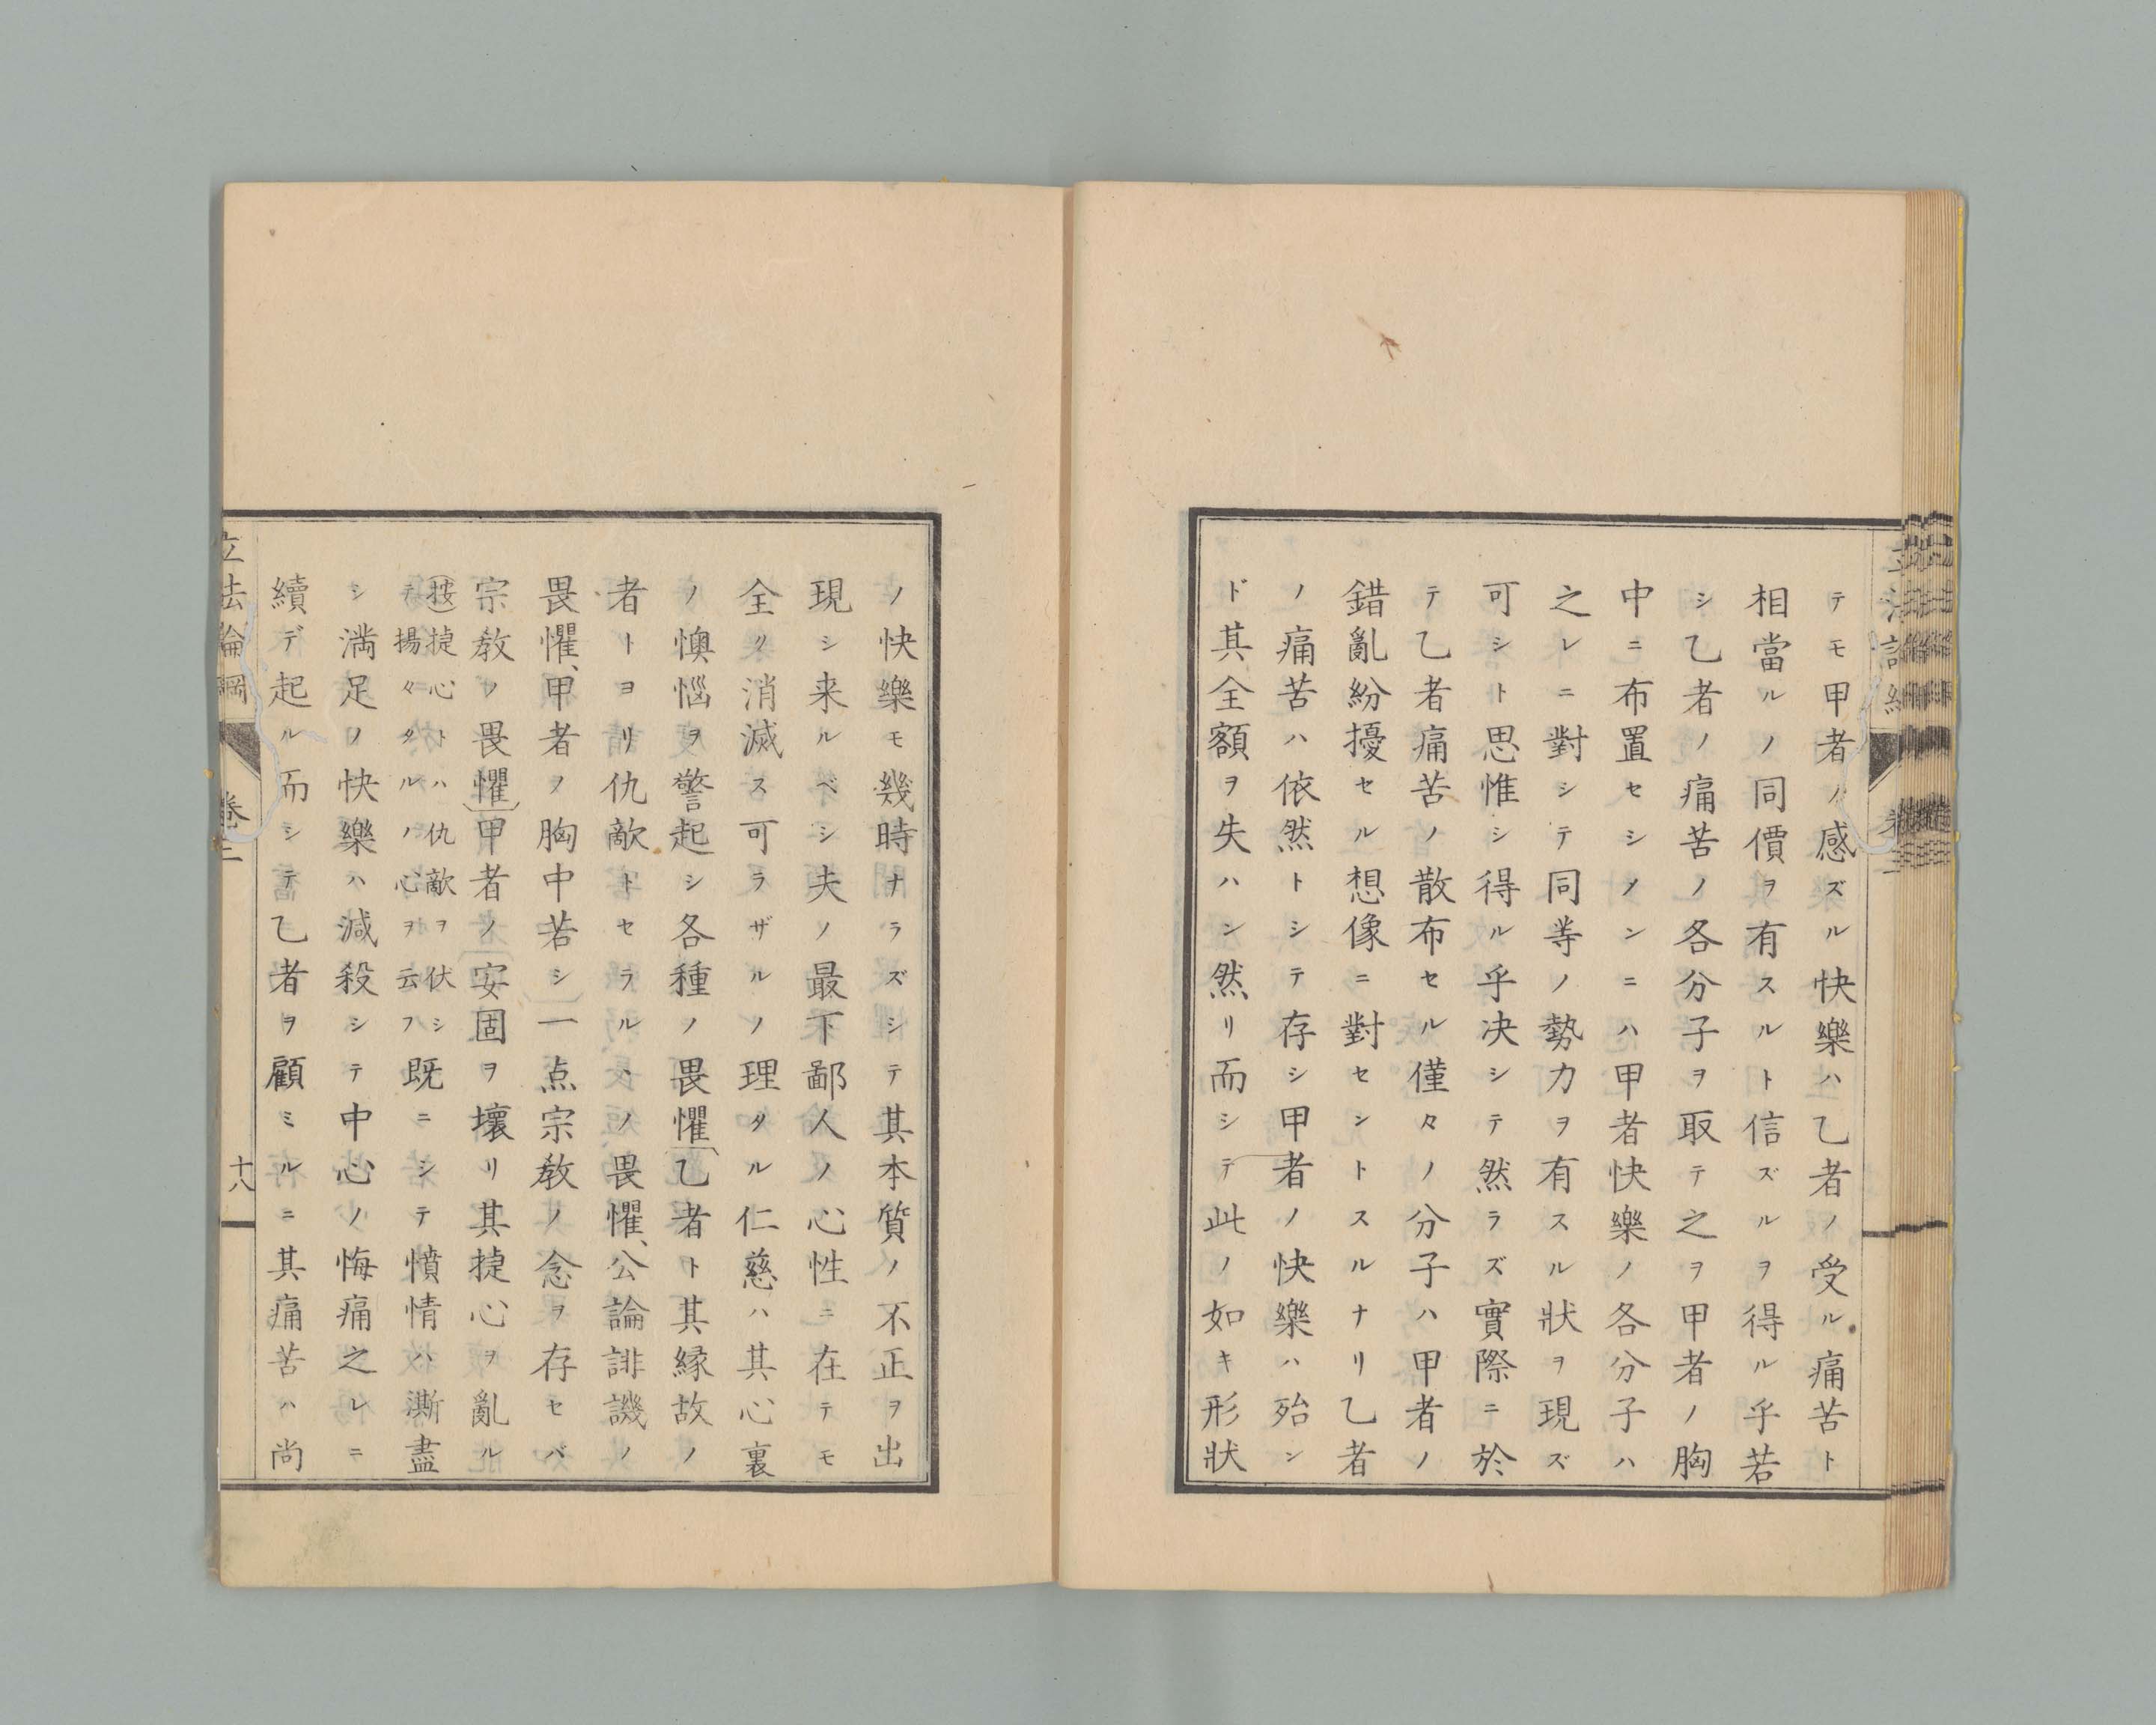 テモ甲者ノ感ズル快樂ハ乙者ノ受ル痛苦ト
相當ルノ同價ヲ有スルト信ズルヲ得ル乎若
シ乙者ノ痛苦ノ各分子ヲ取テ之ヲ甲者ノ胸
中ニ布置セシメンニハ甲者快樂ノ各分子ハ
之レニ對シテ同等ノ勢力ヲ有スル狀ヲ現ズ
可シト思惟シ得ル乎決シテ然ラズ實際ニ於
テ乙者痛苦ノ散布セル僅々ノ分子ハ甲者ノ
錯亂紛擾セル想像ニ對セントスルナリ乙者
ノ痛苦ハ依然トシテ存シ甲者ノ快樂ハ殆ン
ド其全額ヲ失ハン然リ而シテ此ノ如キ形狀
ノ快樂モ幾時ナラズシテ其本質ノ不正ヲ出
現シ来ルベシ夫ノ最下鄙人ノ心性ニ在テモ
全ク消滅ス可ラザルノ理タル仁慈ハ其心裏
ノ懊惱ヲ警起シ各種ノ畏懼乙者ト其縁故ノ
者トヨリ仇敵トセラルヽノ畏懼、公論誹譏ノ
畏懼、甲者ノ胸中若シ一点宗教ノ念ヲ存セバ
宗教ノ畏懼甲者ノ安固ヲ壞リ其捷心ヲ亂ル
(按)捷心トハ仇敵ヲ伏シ
テ揚々タルノ心ヲ云フ
既ニシテ憤情ハ澌盡
シ満足ノ快樂ハ減殺シテ中心ノ悔痛之レニ
續デ起ル而シテ乙者ヲ顧ミルニ其痛苦ハ尚
立法論綱
卷二
十八